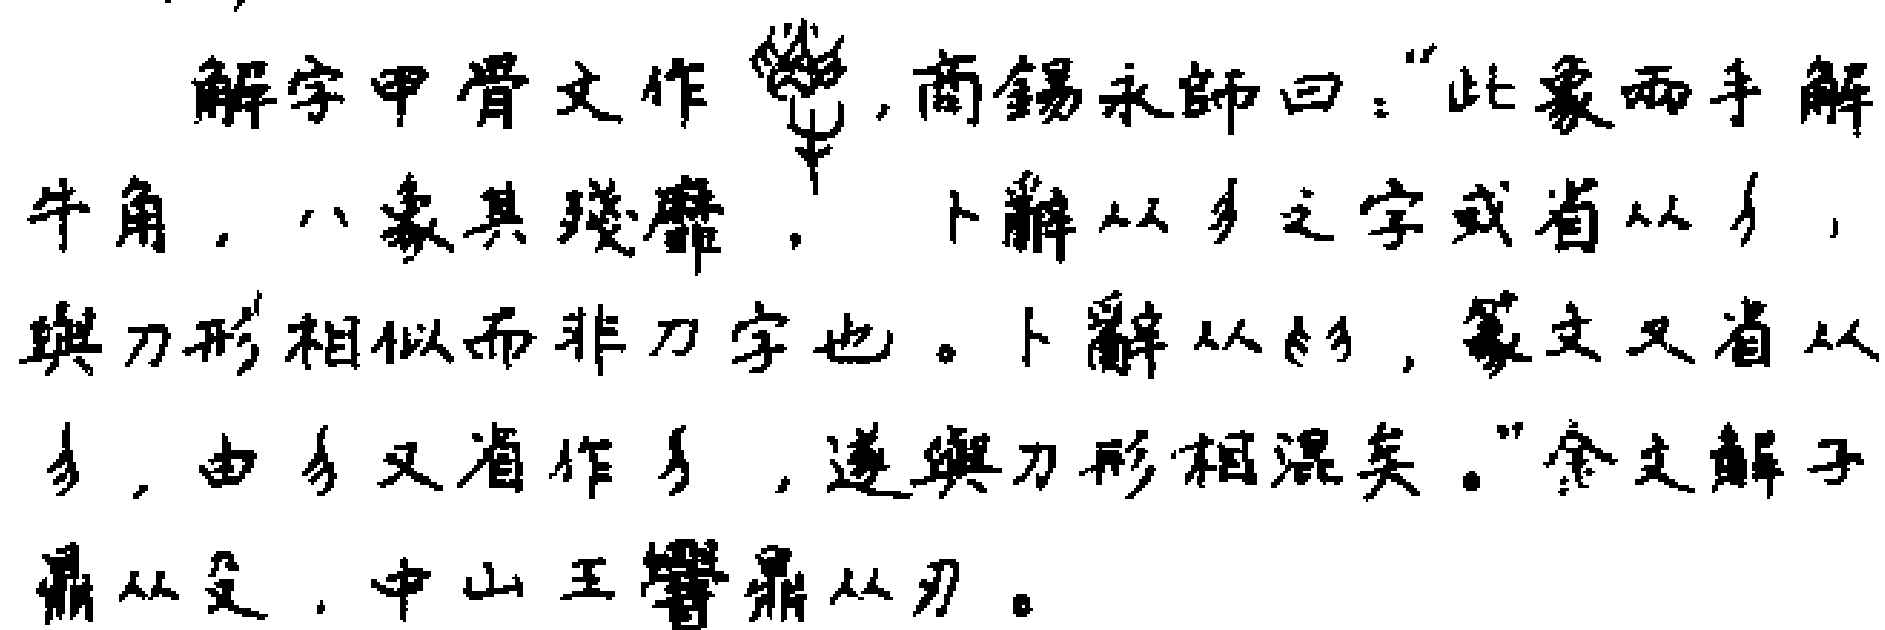 解字甲骨文作，商錫永師曰："此象兩手解
牛角，八象其殘靡。卜辭从之字或省从，
與刀形相似而非刀字也。卜辭从，篆文又省从
，由又省作，遂與刀形相混矣。"金文解子
鼎从殳，中山王鼎从刃。